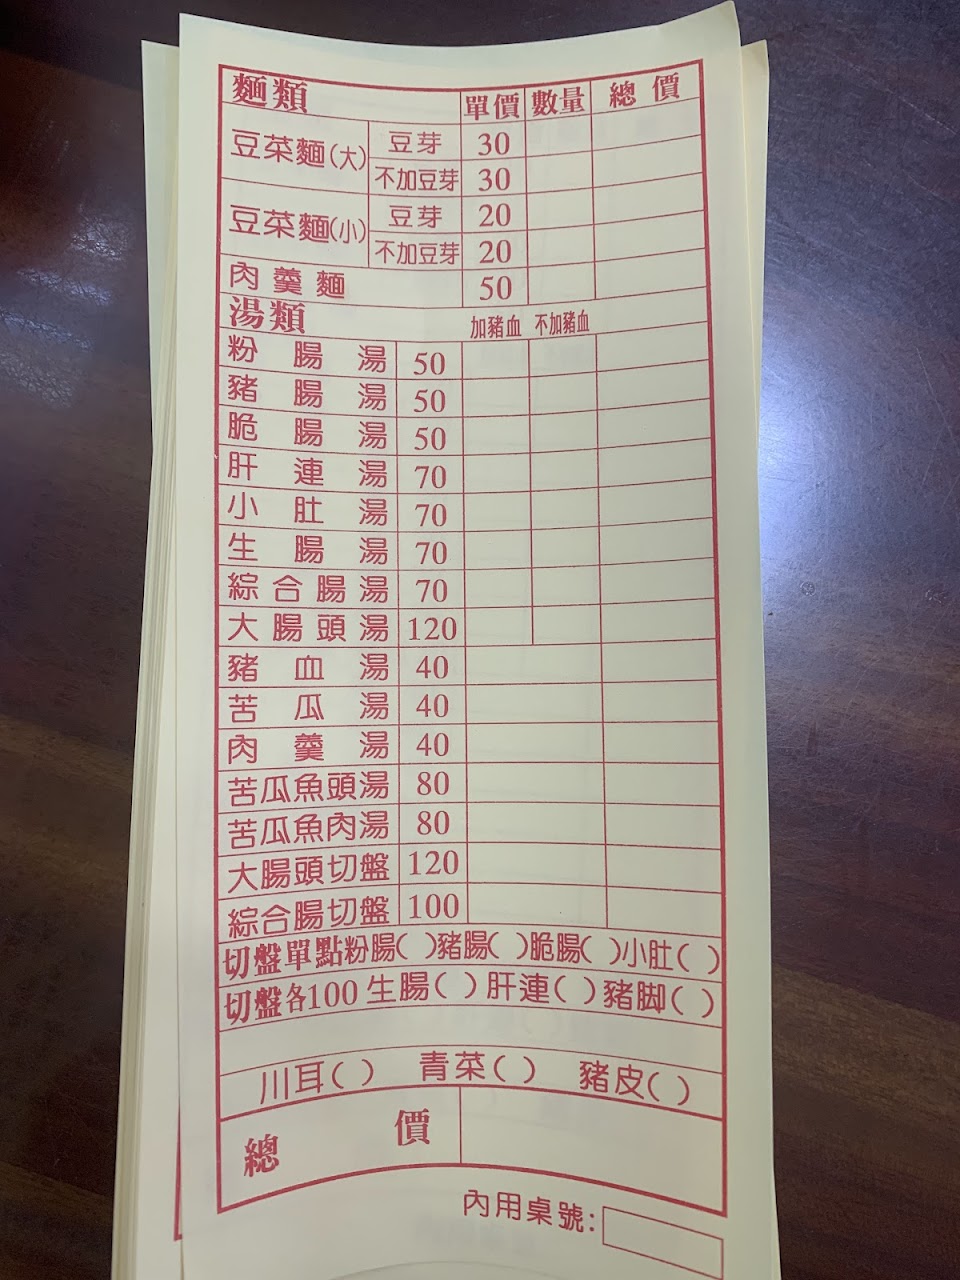 麵類 單價 數量 總價
豆菜麵(大) 豆芽 30
不加豆芽 30
豆菜麵(小) 豆芽 20
不加豆芽 20
肉羹麵 50
湯類 加豬血 不加豬血
粉腸湯 50
豬腸湯 50
脆腸湯 50
肝連湯 70
小肚湯 70
生腸湯 70
綜合腸湯 70
大腸頭湯 120
豬血湯 40
苦瓜湯 40
肉羹湯 40
苦瓜魚頭湯 80
苦瓜魚肉湯 80
大腸頭切盤 120
綜合腸切盤 100
切盤單點粉腸( )豬腸( )脆腸( )小肚( )
切盤各100 生腸( )肝連( )豬脚( )
川耳( ) 青菜( ) 豬皮( )
總價
內用桌號: